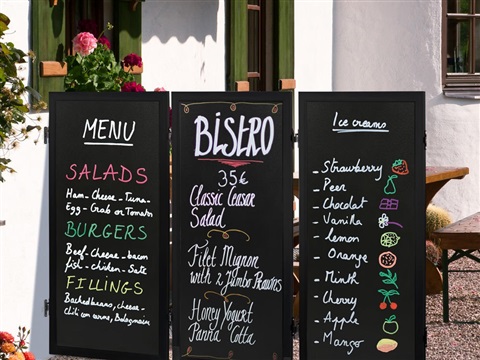 MENU
SALADS
Ham - Cheese - Tuna -
Egg - Grab or Tomato
BURGERS
Beef - Cheese - bacon
fish - chicken - Sate
FILLINGS
Backed beans, cheese -
Chili con carne, Bolognaise
BISTRO
35€
Classic Ceasar
Salad
Filet Mignon
with 2 Jumbo Prawns
Honey Yogurt
Panna Cotta
Ice creams
- Strawberry
- Peer
- Chocolat
- Vanilla
- lemon
- Orange
- Minth
- Cherry
- Apple
- Mango